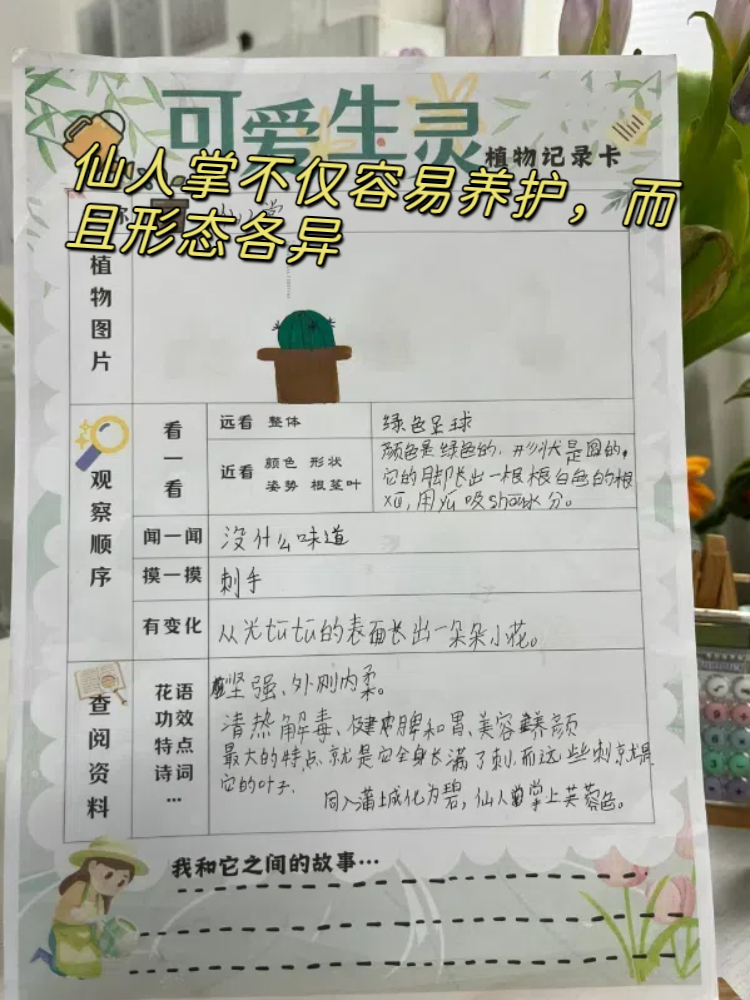 可爱生灵
植物记录卡
仙人掌不仅容易养护，而
且形态各异
称
仙人掌
植物图片
观察顺序
看一看
远看 整体
绿色足球
近看 颜色 形状
姿势 根茎叶
颜色是绿色的，形状是圆的，
它的脚长出一根根白色的根
xū，用yú吸shōu水分。
闻一闻
没什么味道
摸一摸
刺手
有变化
从光tūtū的表面长出一朵朵小花。
查阅资料
花语
功效
特点
诗词
...
坚强、外刚内柔。
清热解毒、健脾和胃、美容养颜
最大的特点就是它全身长满了刺，而这些刺就是
它的叶子
同入蒲城化为碧，仙人掌上芙蓉色。
我和它之间的故事...